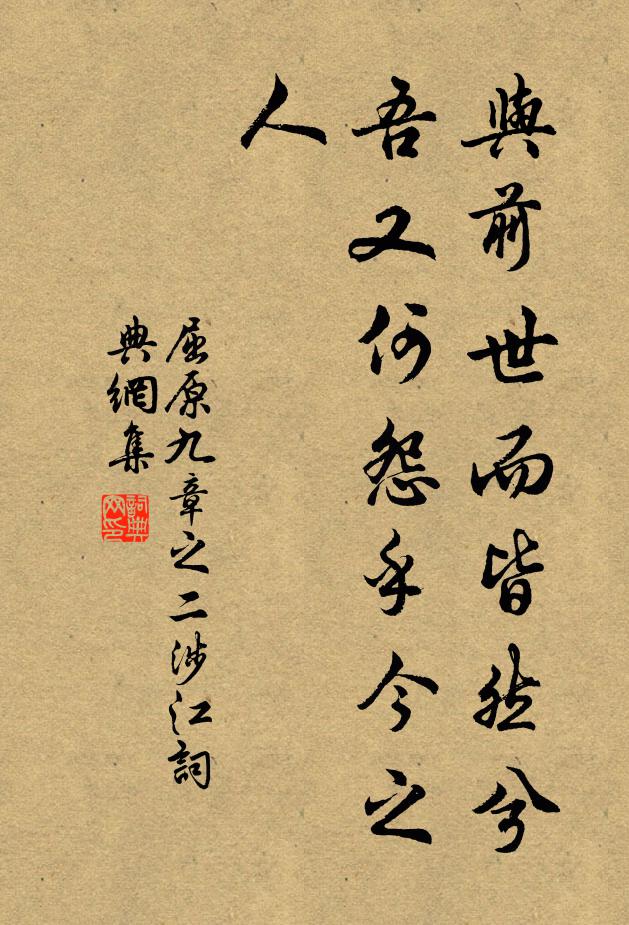 與前世而皆然兮
吾又何怨乎今之
人
屈原九章之二涉江詞
典網集
詞典
网印